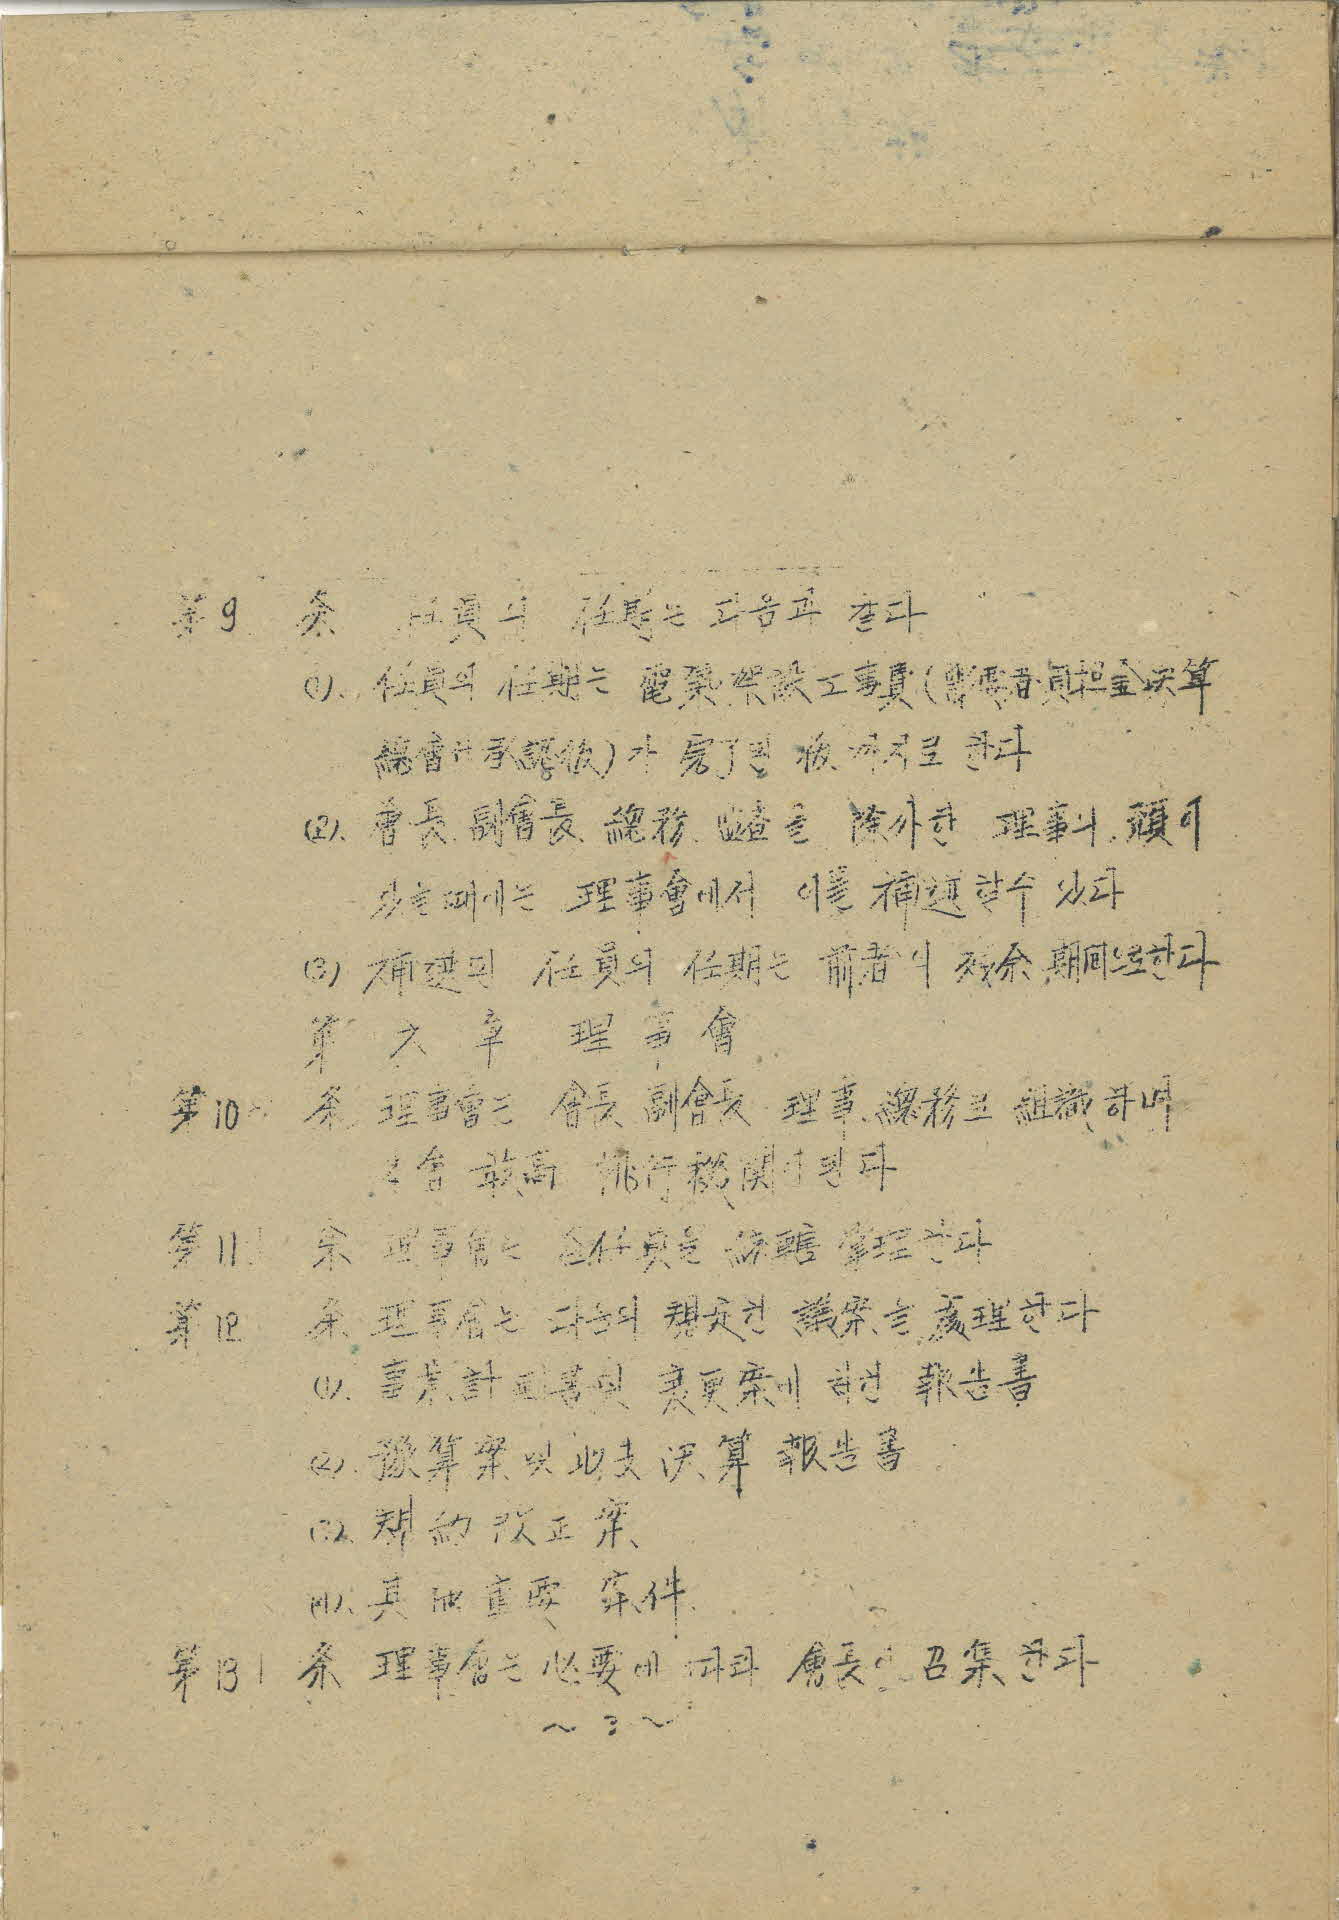 第9 条 任員의 任期는 다음과 갇다
(1). 任員의 任期는 電氣架設工事費(需要者負担金決算
總會의承認後)가 完了된 後까지로 한다
(2). 會長、副會長、總務、監査를 除外한 理事의 頉이
有할때에는 理事會에서 이를 補選할수 있다
(3) 補選된 任員의 任期는 前者의 残余期間으로한다
第 六 章 理 事 會
第10 条 理事會는 會長 副會長 理事、總務로 組織하며
本會 最高 執行機関이 된다
第11 条 理事會는 全任員을 統轄 掌理한다
第12 条 理事會는 다음의 規定한 議案을 處理한다
(1). 事業計画書 및 変更案에 対한 報告書
(2). 豫算案 및 收支 決算 報告書
(3). 規約 改正案
(4). 其他重要 案件
第13 条 理事會는 必要에 따라 會長이 召集한다
~ 3 ~